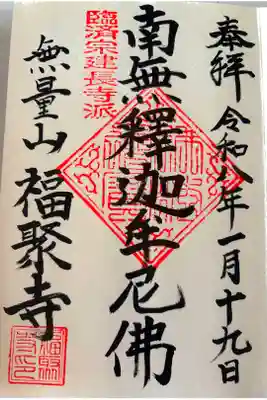 奉拝 令和八年一月十九日
南無釋迦牟尼佛
臨済宗建長寺派
無量山 福聚寺
福聚寺印